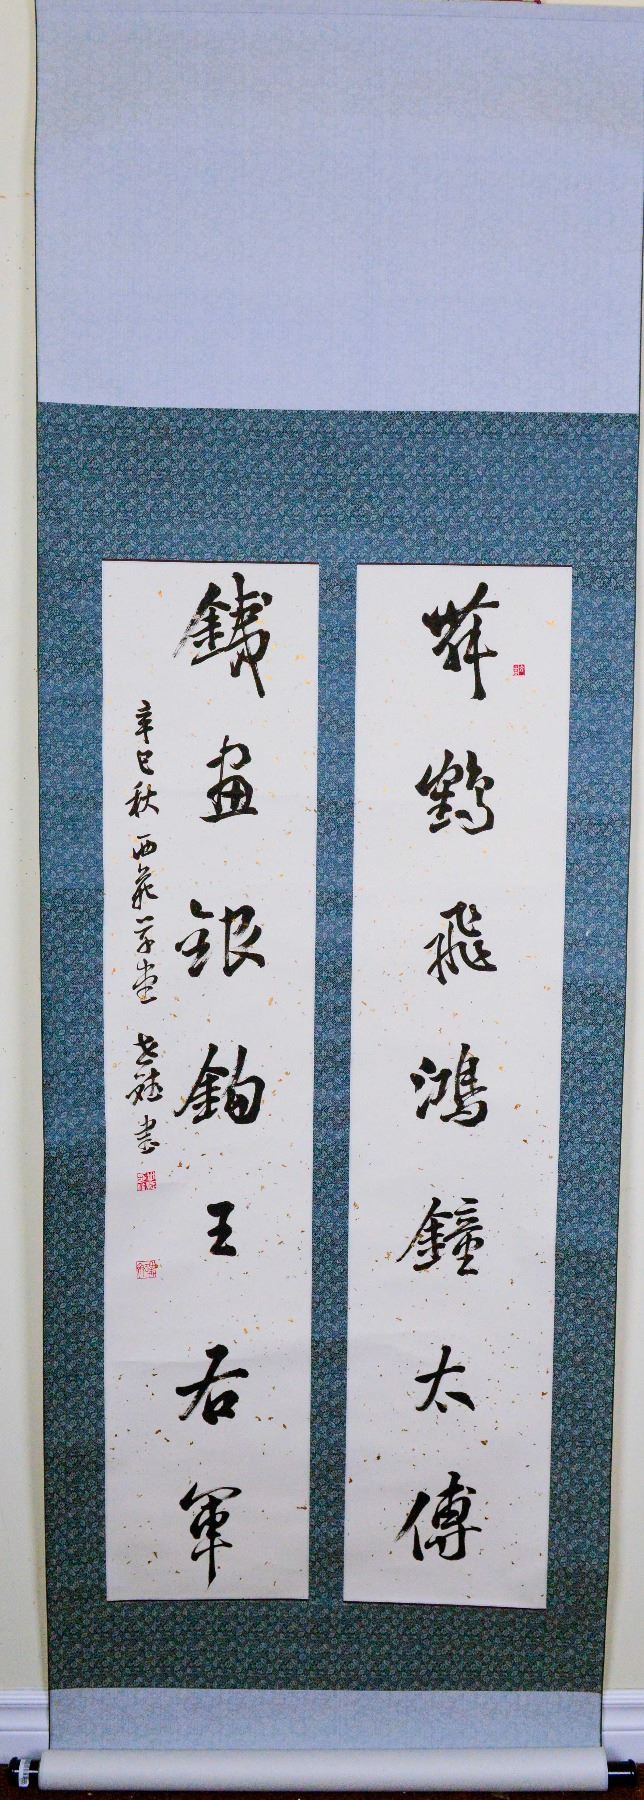 舞鶴飛鴻鐘太傅
鐵畫銀鉤王右軍
辛巳秋西苑草堂 書